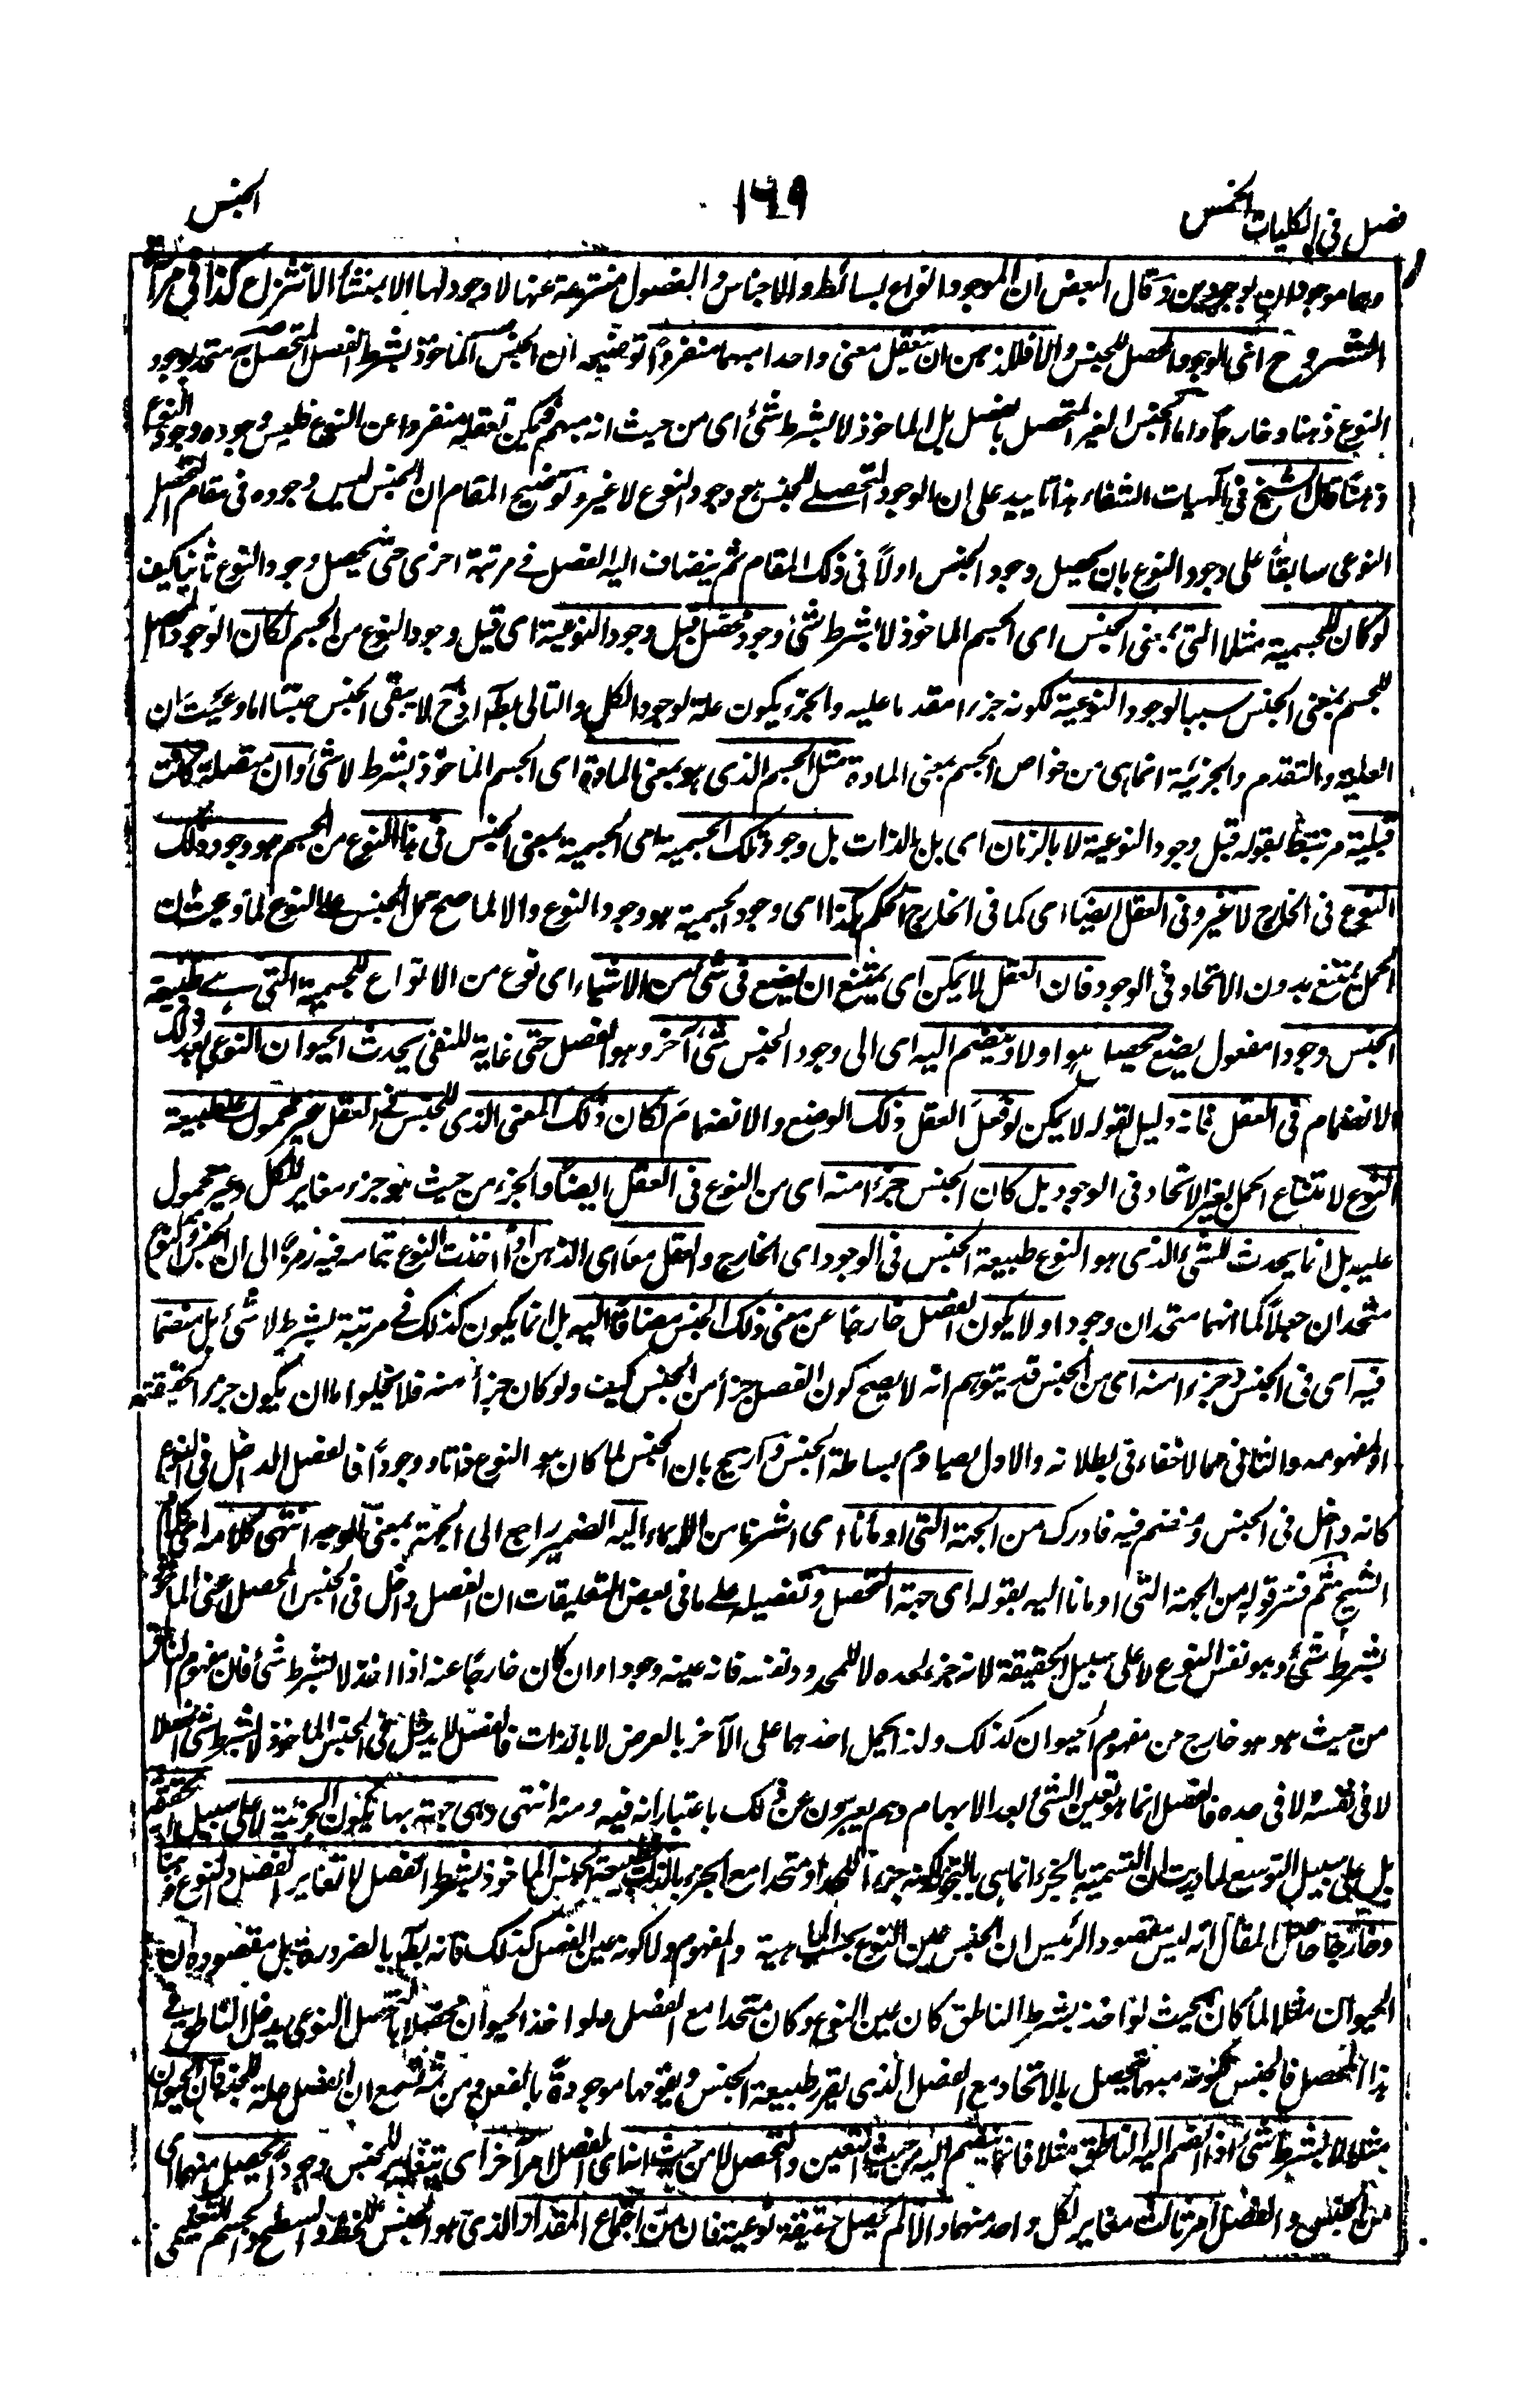 فصل في الكليات الخمس
١٦٩
الجنس
وهما موجودان بوجودين وقال البعض ان الموجود انواع بسائط والاجناس والفصول منتزعة عنها لا وجود لها الا بمنشأ الانتزاع كذا في مرآة
الشروح اي الوجود المحصل للجنس والا فللذهن ان يتعقل معنى واحدا مبهما منفردا توضيحه ان الجنس الماخوذ بشرط الفصل المتحصل به متحد بوجود
النوع ذهنا وخارجا واما الجنس الغير المتحصل بالفصل بل الماخوذ لا بشرط شئ اى من حيث انه مبهم فيمكن تعقله منفردا عن النوع فليس وجوده وجود النوع
ذهنا قال الشيخ في الهيات الشفاء هذا تاييد على ان الوجود التحصلے للجنس هو وجود النوع لا غير وتوضيح المقام ان الجنس ليس وجوده في مقام التحصل
النوعى سابقاً على وجود النوع بان يحصل وجود الجنس اولاً في ذلك المقام ثم ينضاف اليه الفصل في مرتبة اخرى حتى يحصل وجود النوع ثانيا كيف
لو كان للجسمية مثلا التى بمعنى الجنس اى الجسم الماخوذ لا بشرط شئ وجود محصل قبل وجود النوعية اى قبل وجود النوع من الجسم لكان الوجود المحصل
للجسم بمعنى الجنس سببا لوجود النوعية لكونه جزءا مقدما عليه والجزء يكون علة لوجود الكل والتالى بط اذ ح لا يبقى الجنس جنسا لما دعيت ان
العلية والتقدم والجزئية انما هى من خواص الجسم بمعنى المادة مثل الجسم الذى هو بمعنى المادة اى الجسم الماخوذ بشرط لا شئ وان متصلة كانت
قبلية مرتبطا بقوله قبل وجود النوعية لا بالزمان اى بل بالذات بل وجود تلك الجسمية اى الجسمية بمعنى الجنس في هذا النوع من الجسم هو وجود ذلك
النوع في الخارج لا غير وفى العقل ايضا اى كما في الخارج الحكم هكذا اى وجود الجسمية هو وجود النوع والا لما صح حمل الجنس على النوع لما دعيت ان
الحمل يمتنع بدون الاتحاد في الوجود فان العقل لا يمكن اى يمتنع ان يضع في شئ من الاشياء اى نوع من الانواع للجسمية التى هے طبيعة
الجنس وجودا مفعول يضع يحصل هو اولا وينضم اليه اى الى وجود الجنس شئ آخر وهو الفصل حتى غاية للنفى يحدث الحيوان النوعى بعد ذلك
الانضمام في العقل فانه دليل لقوله لا يمكن لو فعل العقل ذلك الوضع والانضمام لكان ذلك المعنى الذى للجنس في العقل غير محمول على طبيعة
النوع لامتناع الحمل بغير الاتحاد في الوجود بل كان الجنس جزءا منه اى من النوع في العقل ايضا والجزء من حيث هو جزء مغاير للكل وغير محمول
عليه بل انما يحدث للشئ الذى هو النوع طبيعة الجنس في الوجود اى الخارج والعقل معا اى الذهن اذا اخذت النوع بتمامه فيه رمز الى ان الجنس والنوع
متحدان جعلاً كما انهما متحدان وجودا ولا يكون الفصل خارجا عن معنى ذلك الجنس مضافا اليه بل انما يكون كذلك في مرتبة بشرط لا شئ بل متضمنا
فيه اى في الجنس وجزءا منه اى من الجنس قد يتوهم انه لا يصح كون الفصل جزأ من الجنس كيف ولو كان جزأ منه فلا يخلو اما ان يكون جزء الحقيقته
او لمفهومه والثانى مما لا خفاء في بطلانه والاول يصادم بساطة الجنس وازيح بان الجنس لما كان هو النوع ذاتا ووجوداً فالفصل الداخل في النوع
كانه داخل في الجنس ومنضم فيه فادرك من الجهة التى اومأنا اى اشرنا من الايماء اليه الضمير راجع الى الجهة بمعنى الوجه انتهى كلامه اى كلام
الشيخ ثم فسر قوله من الجهة التى اومانا اليه بقوله اى جهة التحصل وتفصيله على ما فى بعض التعليقات ان الفصل داخل في الجنس المحصل اعنى الماخوذ
بشرط شئ وهو نفس النوع لا على سبيل الحقيقة لانه جزء لحده لا للمحدود نفسه فانه عينه وجودا وان كان خارجا عنه اذا اخذ لا بشرط شئ فان مفهوم الناطق
من حيث هو هو خارج من مفهوم الحيوان كذلك ولذا يحمل احدهما على الآخر بالعرض لا بالذات فالفصل لا يدخل في الجنس الماخوذ لا بشرط شئ اصلا
لا في نفسه ولا في حده فالفصل انما هو تعين الشئ بعد الابهام وهم يعبرون عن ذلك باعتبار انه فيه ومنه انتهى وهى جهة بها تكون الجزئية لا على سبيل الحقيقة
بل على سبيل التوسع لما دريت ان التسمية بالجزء انما هى بالتجوز لكونه جزء الحد او متحدا مع الجزء بالذات طبيعة الجنس الماخوذ بشرط الفصل لا تغاير الفصل والنوع ذهنا
وخارجا حاصل المقال انه ليس مقصود الرئيس ان الجنس عين النوع بحسب الماهية والمفهوم ولا كونه عين الفصل كذلك فانه بط بالضرورة بل مقصوده ان
الحيوان مثلا لما كان بحيث لو اخذ بشرط الناطق كان عين النوع وكان متحدا مع الفصل ولو اخذ الحيوان محصلا بالتحصل النوعى يدخل الناطق في
هذا المحصل فالجنس لكونه مبهما يتحصل بالاتحاد مع الفصل الذى يقرر طبيعة الجنس ويقومها موجودة بالفعل ومن ثمه تسمع ان الفصل علة للجنس فان الحيوان
مثلا لا بشرط شئ اذا انضم اليه الناطق مثلا فانما ينضم اليه من حيث التعين والتحصل لا من حيث انه اى الفصل امر آخر اى يتغاير للجنس وجودا يحصل منهما اى
من الجنس والفصل امر ثالث مغاير لكل واحد منهما والا لم يحصل حقيقة نوعية فان من اجتماع المقدار الذى هو الجنس للخط والسطح والجسم التعليمى